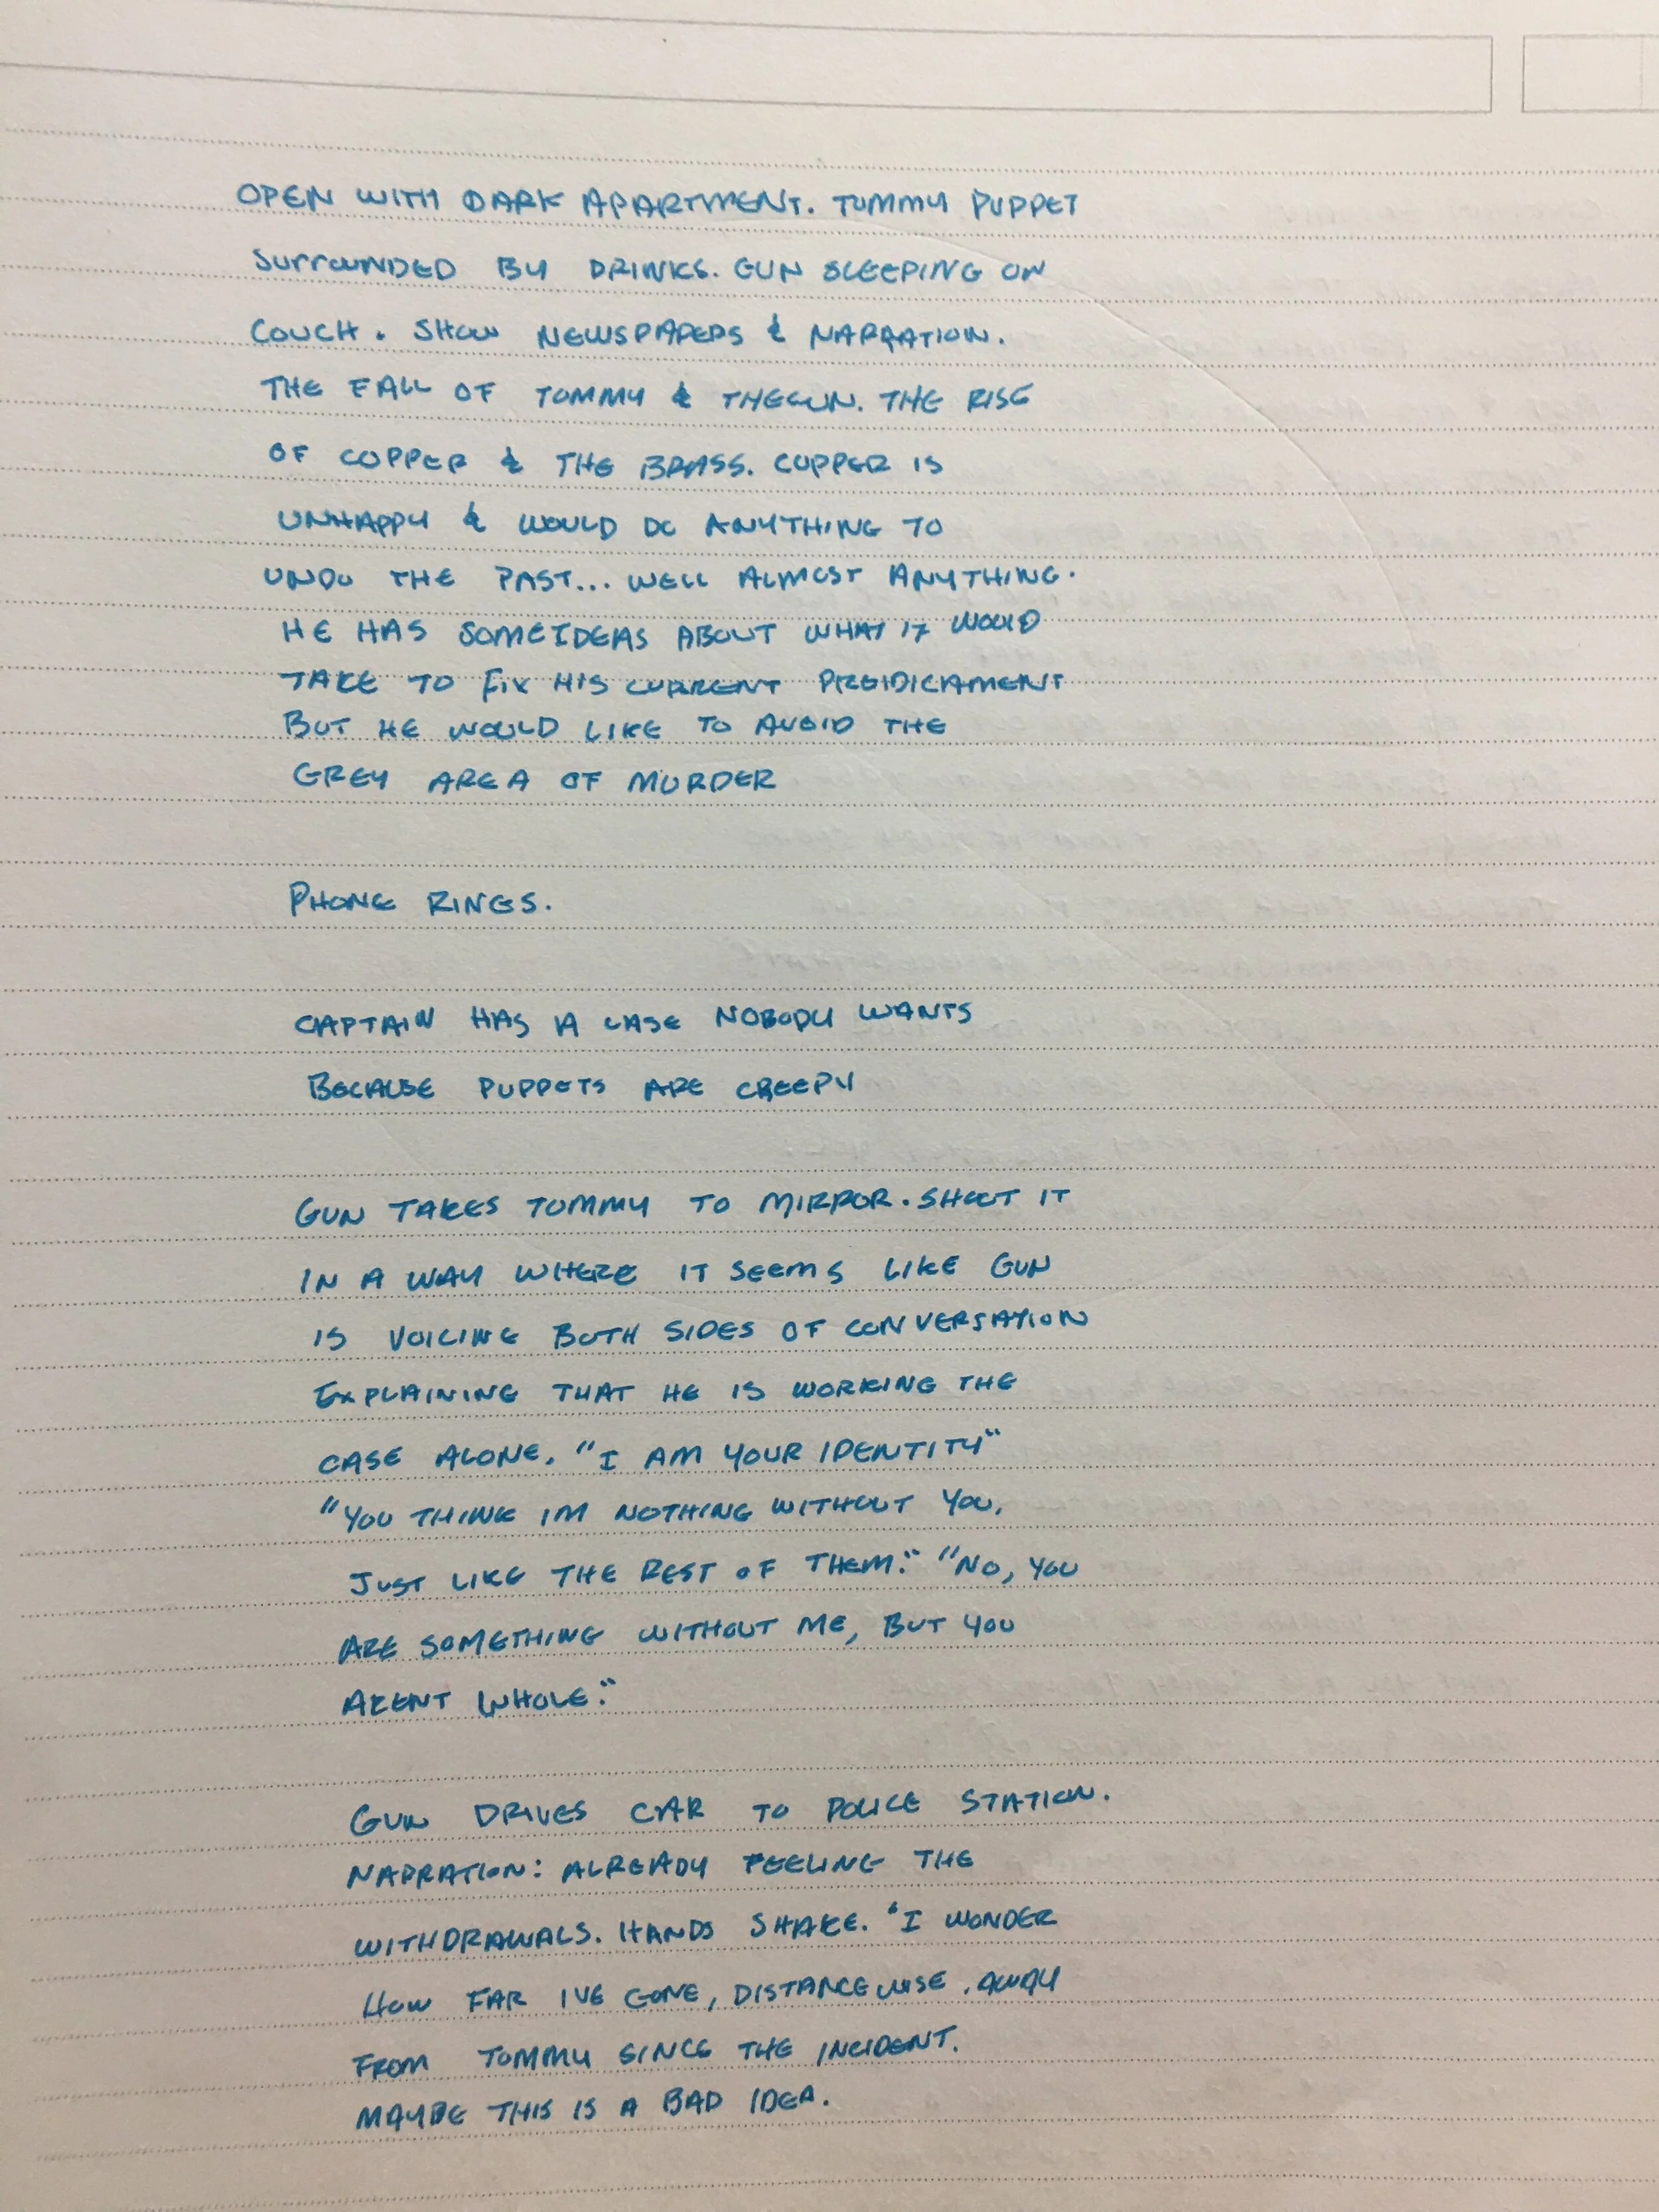 OPEN WITH DARK APARTMENT. TOMMY PUPPET
SURROUNDED BY DRINKS. GUN SLEEPING ON
COUCH. SHOW NEWSPAPERS & NARRATION.
THE FALL OF TOMMY & THEGUN. THE RISE
OF COPPER & THE BRASS. COPPER IS
UNHAPPY & WOULD DO ANYTHING TO
UNDO THE PAST... WELL ALMOST ANYTHING.
HE HAS SOME IDEAS ABOUT WHAT IT WOULD
TAKE TO FIX HIS CURRENT PREIDICAMENT
BUT HE WOULD LIKE TO AVOID THE
GREY AREA OF MURDER
PHONE RINGS.
CAPTAIN HAS A CASE NOBODY WANTS
BECAUSE PUPPETS ARE CREEPY
GUN TAKES TOMMY TO MIRROR. SHOOT IT
IN A WAY WHERE IT SEEMS LIKE GUN
IS VOICING BOTH SIDES OF CONVERSATION
EXPLAINING THAT HE IS WORKING THE
CASE ALONE. "I AM YOUR IDENTITY"
"YOU THINK IM NOTHING WITHOUT YOU,
JUST LIKE THE REST OF THEM." "NO, YOU
ARE SOMETHING WITHOUT ME, BUT YOU
ARENT WHOLE."
GUN DRIVES CAR TO POLICE STATION.
NARRATION: ALREADY FEELING THE
WITHDRAWALS. HANDS SHAKE. "I WONDER
HOW FAR IVE GONE, DISTANCE WISE, AWAY
FROM TOMMY SINCE THE INCIDENT.
MAYBE THIS IS A BAD IDEA.